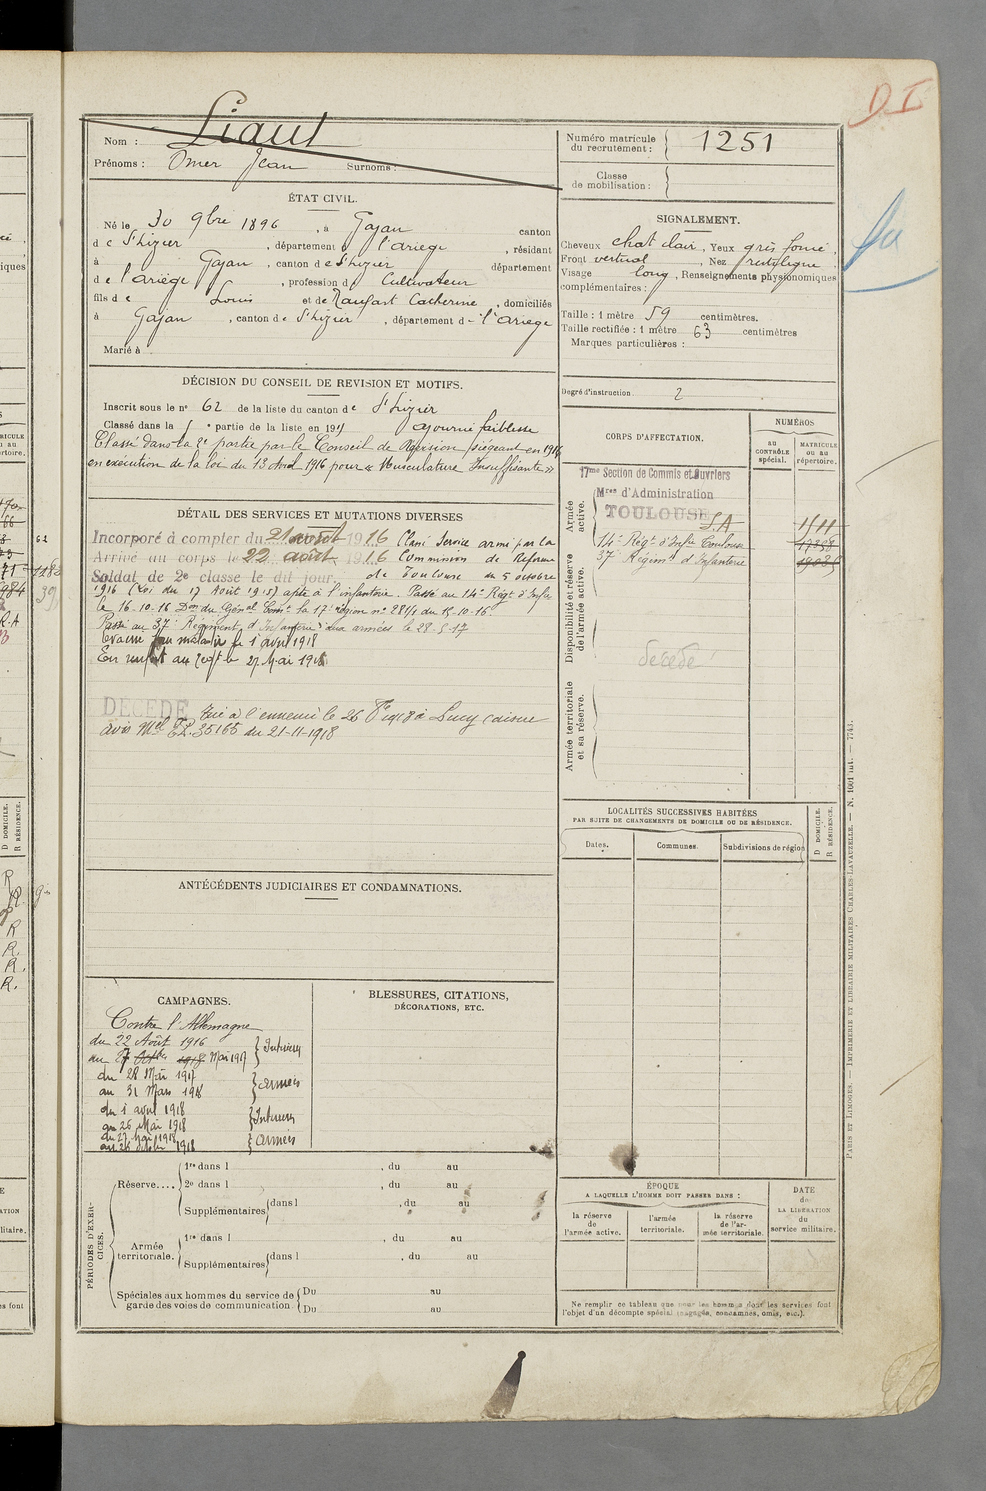 D I
Nom : Liaut
Prénoms : Omer Jean Surnoms :
Numéro matricule du recrutement : 1251
Classe de mobilisation :
ÉTAT CIVIL.
Né le 30 9bre 1896, à Gajan canton
de St Lizier, département de l'Ariège, résidant
à Gajan, canton de St Lizier département
de l'Ariège, profession de Cultivateur
fils de Louis et de Catherine, domiciliés
à Gajan, canton de St Lizier, département de l'Ariège
Marié à
SIGNALEMENT.
Cheveux chat clair, Yeux gris foncé
Front vertical, Nez rectiligne
Visage long, Renseignements physionomiques
complémentaires :
Taille : 1 mètre 59 centimètres.
Taille rectifiée : 1 mètre 63 centimètres
Marques particulières :
Degré d'instruction 2
DÉCISION DU CONSEIL DE REVISION ET MOTIFS.
Inscrit sous le n° 62 de la liste du canton de St Lizier
Classé dans la partie de la liste en 191 ajourné faiblesse
Classé dans la 2e partie par le Conseil de Révision siégeant en 1916
en exécution de la loi du 13 Avril 1916 pour « Musculature Insuffisante »
DÉTAIL DES SERVICES ET MUTATIONS DIVERSES
Incorporé à compter du 21 août 1916 Classé Service armé par la
Arrivé au corps le 22 août 1916 Commission de Réforme
Soldat de 2e classe le dit jour. de Toulouse du 5 octobre
1916 (loi du 17 Août 1915) apte à l'infanterie. Passé au 14e Régt d'Infie
le 16-10-16 Don du Génal Comt la 17e région n° 281/1 du 12-10-16
Passé au 37e Régiment d'Infanterie aux armées le 28-5-17
Evacué malade le 1 avril 1918
En renfort au Regt le 27 Mai 1918
DÉCÉDÉ Tué à l'ennemi le 26 8bre 1918 à Lucy (aisne
avis Mel 35165 du 21-11-1918
CORPS D'AFFECTATION.
NUMÉROS
au CONTRÔLE spécial.
MATRICULE ou au répertoire.
Armée active.
Disponibilité et réserve de l'armée active.
Armée territoriale et sa réserve.
17me Section de Commis et Ouvriers
Mres d'Administration
TOULOUSE
S.A
14e Régt d'Infie Toulouse
37e Régimt d'Infanterie
décédé
LOCALITÉS SUCCESSIVES HABITÉES
PAR SUITE DE CHANGEMENTS DE DOMICILE OU DE RÉSIDENCE.
Dates.
Communes.
Subdivisions de région
D DOMICILE.
R RÉSIDENCE.
ANTÉCÉDENTS JUDICIAIRES ET CONDAMNATIONS.
CAMPAGNES.
Contre l'Allemagne
du 22 Août 1916
au 27 Mai 1917 } Intérieur
du 28 Mai 1917
au 31 Mars 1918 } armées
du 1 avril 1918
au 26 Mai 1918 } Intérieur
du 27 Mai 1918
au 26 octobre 1918 } armées
BLESSURES, CITATIONS,
DÉCORATIONS, ETC.
PÉRIODES D'EXERCICES.
Réserve.... 1re dans l , du au
2e dans l , du au
Supplémentaires dans l , du au
Armée territoriale. 1re dans l , du au
Supplémentaires dans l , du au
Spéciales aux hommes du service de garde des voies de communication. Du au
Du au
ÉPOQUE
A LAQUELLE L'HOMME DOIT PASSER DANS :
la réserve de l'armée active.
l'armée territoriale.
la réserve de l'armée territoriale.
DATE de LA LIBÉRATION du service militaire.
Ne remplir ce tableau que pour les hommes dont les services font
l'objet d'un décompte spécial (engagés, condamnés, omis, etc.).
PARIS ET LIMOGES. — IMPRIMERIE ET LIBRAIRIE MILITAIRES CHARLES-LAVAUZELLE. — N. 1001 int. — 7743.